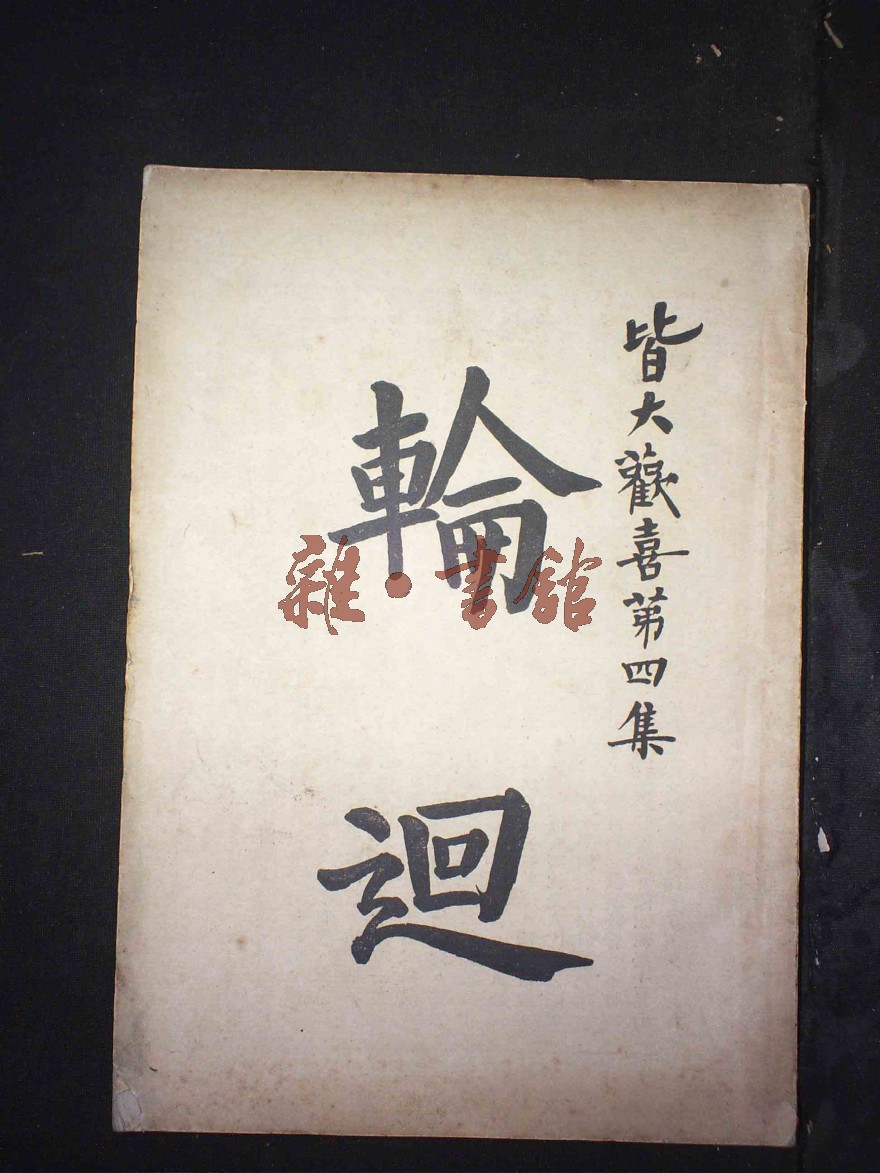 皆大歡喜第四集
輪迴
雜·書館